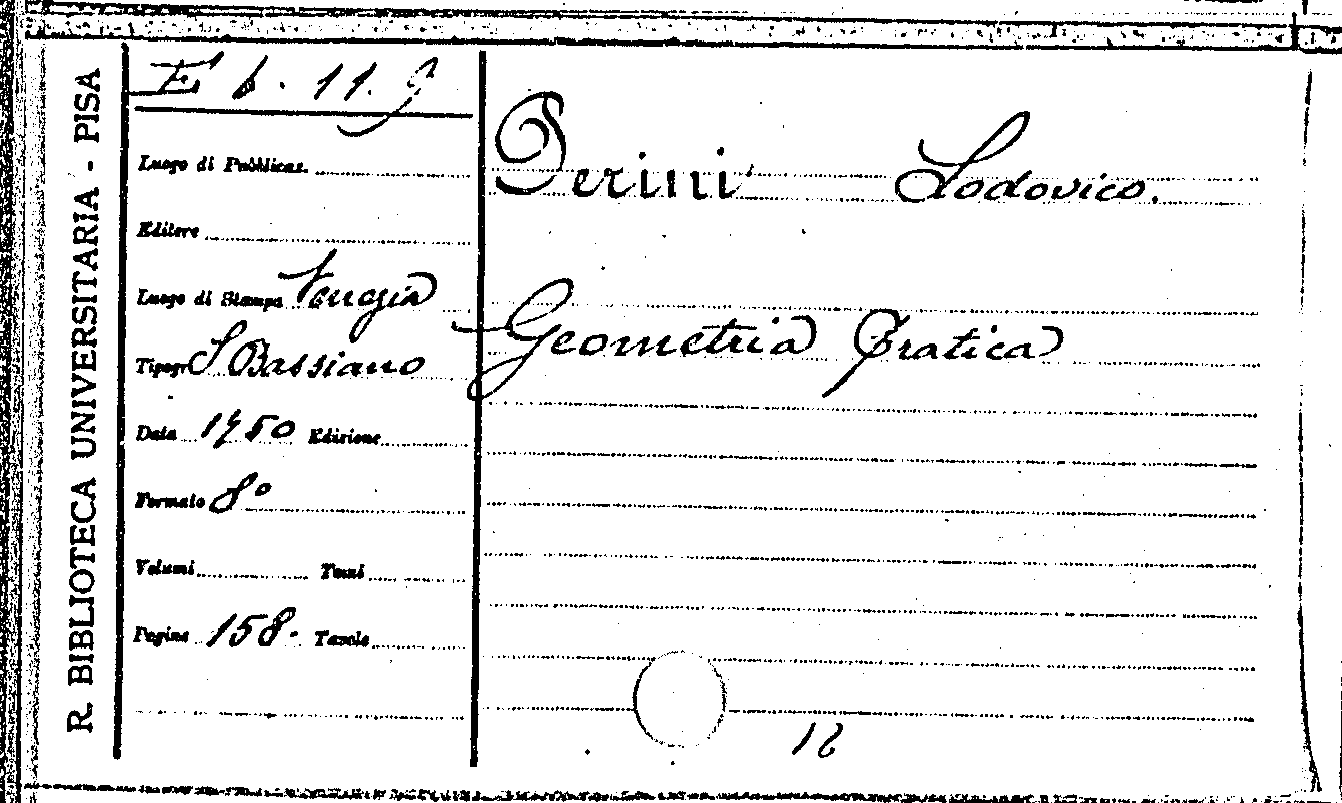 R. BIBLIOTECA UNIVERSITARIA - PISA
E b. 11. 9
Luogo di Pubblicaz.
Editore
Luogo di Stampa Venezia
Tipogr. S Bassiano
Data 1750 Edizione
Formato 8°
Volumi Tomi
Pagine 158. Tavole
Perini Lodovico.
Geometria Pratica
12